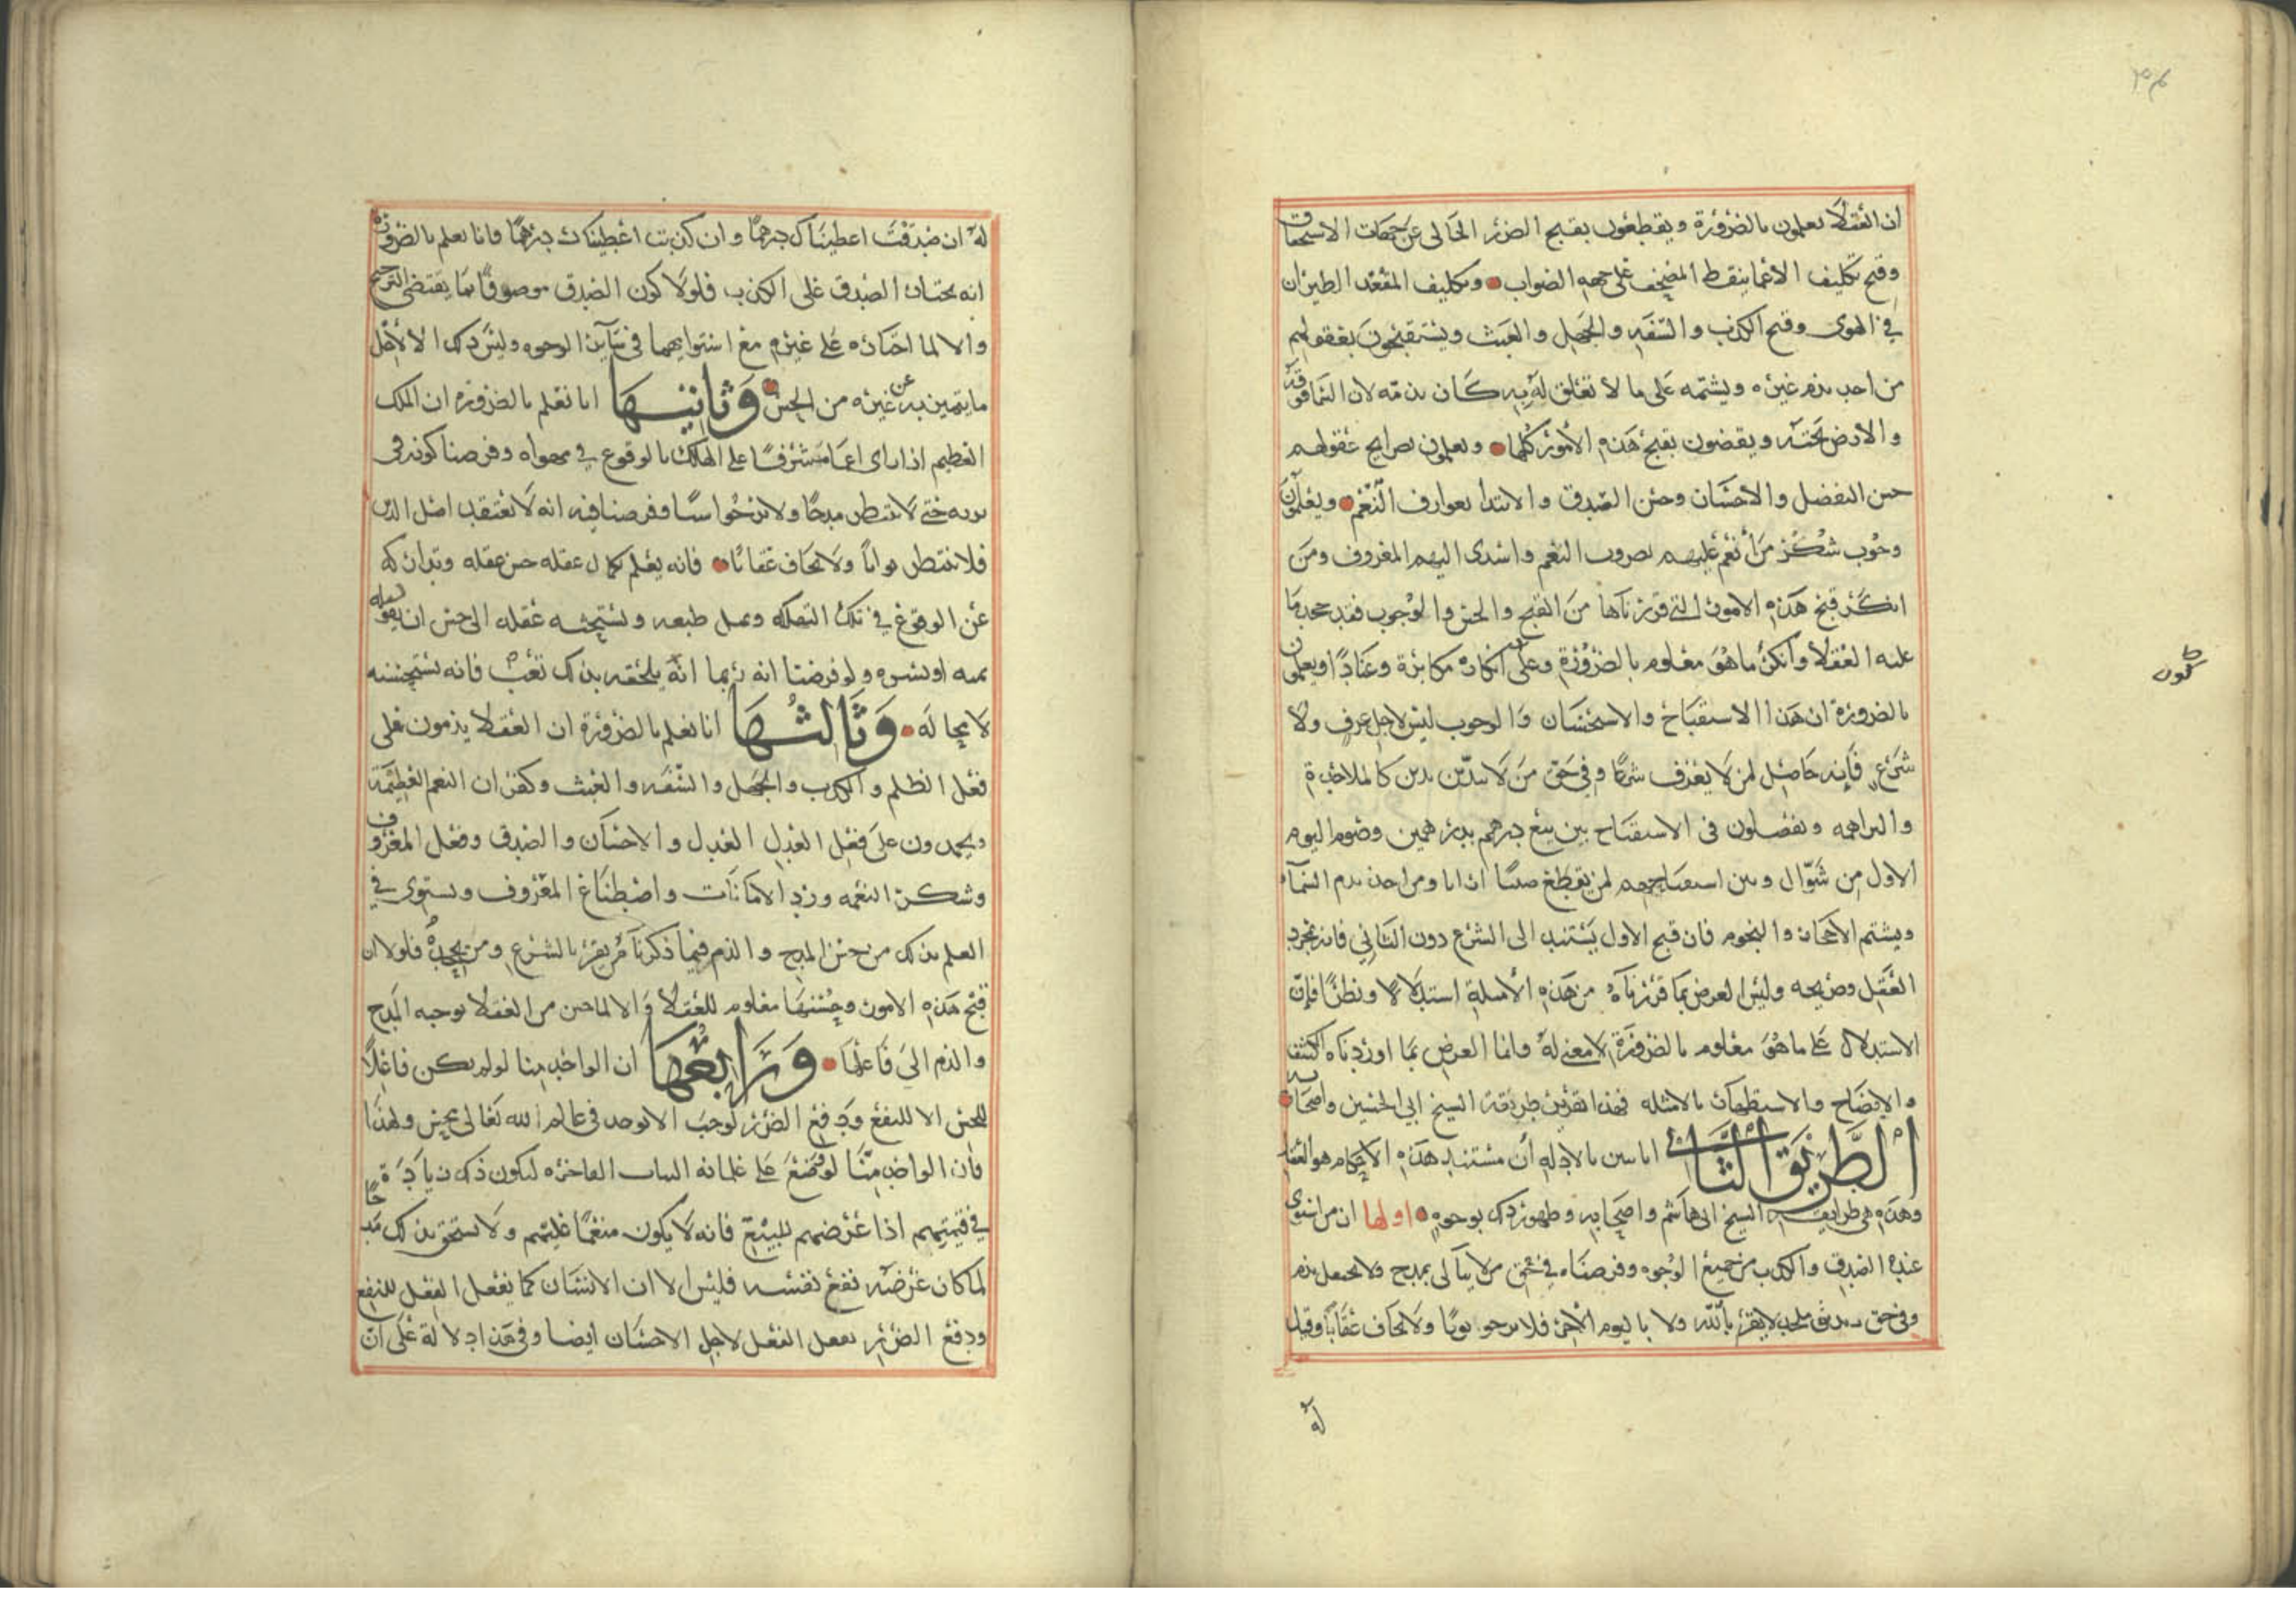 ان العقلا يعلمون بالضرورة ويقطعون بقبح الضرر الخالى عن جهات الاستحقاق
وقبح تكليف الاعما بنقط المصحف على جهه الصواب وتكليف المقعد الطيران
في الهوى وقبح الكذب والسفه والجهل والعبث ويستقبحون بعقولهم
من احد يذم غيره ويشتمه على ما لا تعلق له به كان يذمه لان السما فوقه
والارض تحته ويقضون بقبح هذه الأمور كلها ويعلمون بصرايح عقولهم
حسن التفضل والاحسان وحسن الصدق والابتدا بعوارف النعم ويعلمون
وجوب شكر من أنعم عليهم بصروب النعم واسدى اليهم المعروف ومن
انكر قبح هذه الامور التي قررناها من القبح والحسن والوجوب فقد جحد ما
عليه العقلا وانكر ما هو معلوم بالضرورة وعلى انكاره مكابرة وعنادا ويعلمون
بالضرورة ان هذا الاستقباح والاستحسان والوجوب ليس لاجل عرف ولا
شرع فإنه حاصل لمن لا يعرف شرعا وفي حق من لا يتدين بدين كالملاحدة
والبراهمه ويفصلون فى الاستقباح بين بيع درهم بدرهمين وصوم اليوم
الاول من شوال وبين استقباحهم لمن يقطع صبيا اربا ومن احد يذم السمآء
ويشتم الاحجار والنجوم فان قبح الاول يستند الى الشرع دون الثاني فانه بمجرد
العقل وصريحه وليس الغرض بما قررناه من هذه الأمثلة استدلالا ونظرا فإن
الاستدلال على ما هو معلوم بالضرورة لا معنى له وانما الغرض بما اوردناه الكشف
والايضاح والاستظهار بالامثله فهذا تقرير طريقة الشيخ ابي الحسين واصحابه
الطريق الثاني انا نبين بالادله أن مستند هذه الاحكام هو العقل
وهذه هي طرايقه الشيخ ابى هاشم واصحابه وظهور ذلك بوجوه اولها ان من استوى
عنده الصدق والكذب من جميع الوجوه وفرضناه في حق من لا يبالى بمدح ولا يحفل بذم
وفي حق ملحد لا يقر بالله ولا باليوم الآخر فلا يرجو ثوبا ولا يخاف عقابا وقيل
له
له ان صدقت اعطيناك درهما وان كذبت اعطيناك درهما فانا نعلم بالضرورة
انه يختار الصدق على الكذب فلولا كون الصدق موصوفا بما يقتضى الترجيح
والا لما اختاره على غيره مع استوايهما في سآير الوجوه وليس ذلك الا لأجل
ما يتميز به عن غيره من الحسن وثانيها انا نعلم بالضروره ان الملك
العظيم اذا راى اعما مشرفا على الهلاك بالوقوع في مهواه وفرضنا كونه فى
بريه حتى لا ينتظر مدحا ولا يرجوا وفرضنا فيه انه لا يعتقد اصل الدين
فلا ينتظر ثوابا ولا يخاف عقابا فانه يعلم بكمال عقله حسن عقله وتداركه
عن الوقوع في تلك التهلكه وميل طبعه ويستحثه عقله الى حسن ان يقوله
يمنه او يسره ولو فرضنا انه ربما انه يلحقه بذلك تعب فانه يستحسنه
لا محاله وثالثها انا نعلم بالضرورة ان العقلا يذمون على
فعل الظلم والكذب والجهل والسفه والعبث وكفران النعم العظيمة
ويحمدون على فعل العدل العدل والاحسان والصدق وفعل المعروف
وشكر النعمه ورد الامانات واصطناع المعروف ويستوى في
العلم بذلك من حسن المدح والذم فيما ذكرنا من يقر بالشرع ومن يجحده فلولا ان
قبح هذه الامور وحسنها معلوم للعقلا والا لما حسن من العقلا توجيه المدح
والذم الى فاعلها ورابعها ان الواحد منا لو لم يكن فاعلا
للحسن الا للنفع ودفع الضرر لوجب الا يوجد فى عالم الله تعالى محسن ولهذا
فان الواحد منا لو وضع على غلمانه الثياب الفاخره ليكون ذلك زيادة
في قيمتهم اذا عرضهم للبيع فانه لا يكون منعما عليهم ولا يستحق بذلك مدحا
لما كان غرضه نفع نفسه فليس الا ان الانسان كما يفعل الفعل للنفع
ودفع الضرر يفعل الفعل لاجل الاحسان ايضا وفى هذا دلالة على ان